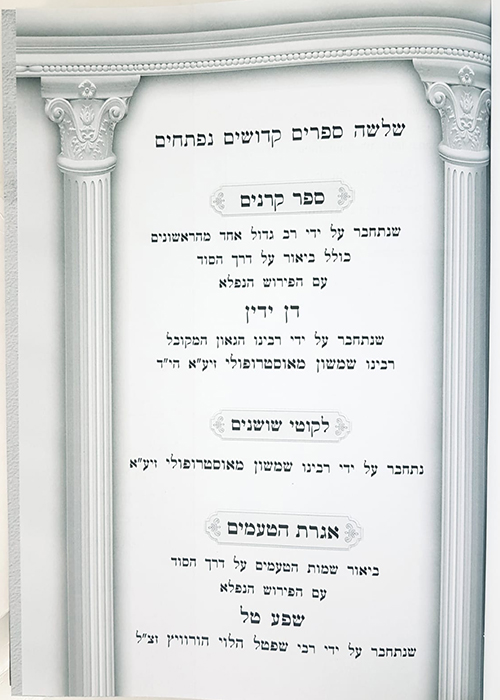 שלשה ספרים קדושים נפתחים
ספר קרנים
שנתחבר על ידי רב גדול אחד מהראשונים
כולל ביאור על דרך הסוד
עם הפירוש הנפלא
דן ידין
שנתחבר על ידי רבינו הגאון המקובל
רבינו שמשון מאוסטרופולי זיע"א הי"ד
לקוטי שושנים
נתחבר על ידי רבינו שמשון מאוסטרופולי זיע"א
אגרת הטעמים
ביאור שמות הטעמים על דרך הסוד
עם הפירוש הנפלא
שפע טל
שנתחבר על ידי רבי שפטל הלוי הורוויץ זצ"ל